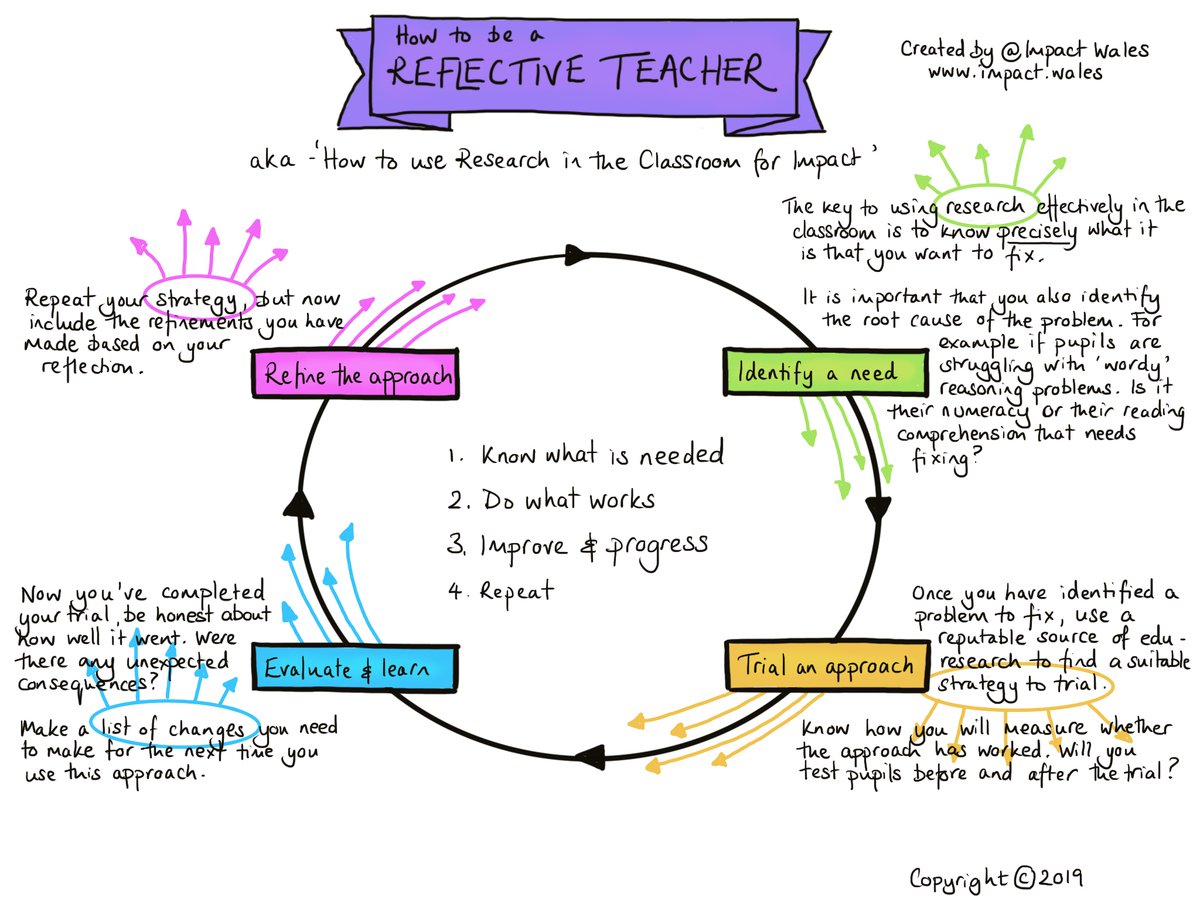 How to be a
REFLECTIVE TEACHER
Created by @Impact Wales
www.impact.wales
aka - 'How to use Research in the Classroom for Impact'
The key to using research effectively in the
classroom is to know precisely what it
is that you want to fix.
It is important that you also identify
the root cause of the problem. For
example if pupils are
struggling with 'wordy'
reasoning problems. Is it
their numeracy or their reading
comprehension that needs
fixing?
Identify a need
Repeat your strategy, but now
include the refinements you have
made based on your
reflection.
Refine the approach
1. Know what is needed
2. Do what works
3. Improve & progress
4. Repeat
Once you have identified a
problem to fix, use a
reputable source of edu-
research to find a suitable
strategy to trial.
Know how you will measure whether
the approach has worked. Will you
test pupils before and after the trial?
Trial an approach
Now you've completed
your trial, be honest about
how well it went. Were
there any unexpected
consequences?
Make a list of changes you need
to make for the next time you
use this approach.
Evaluate & learn
Copyright © 2019